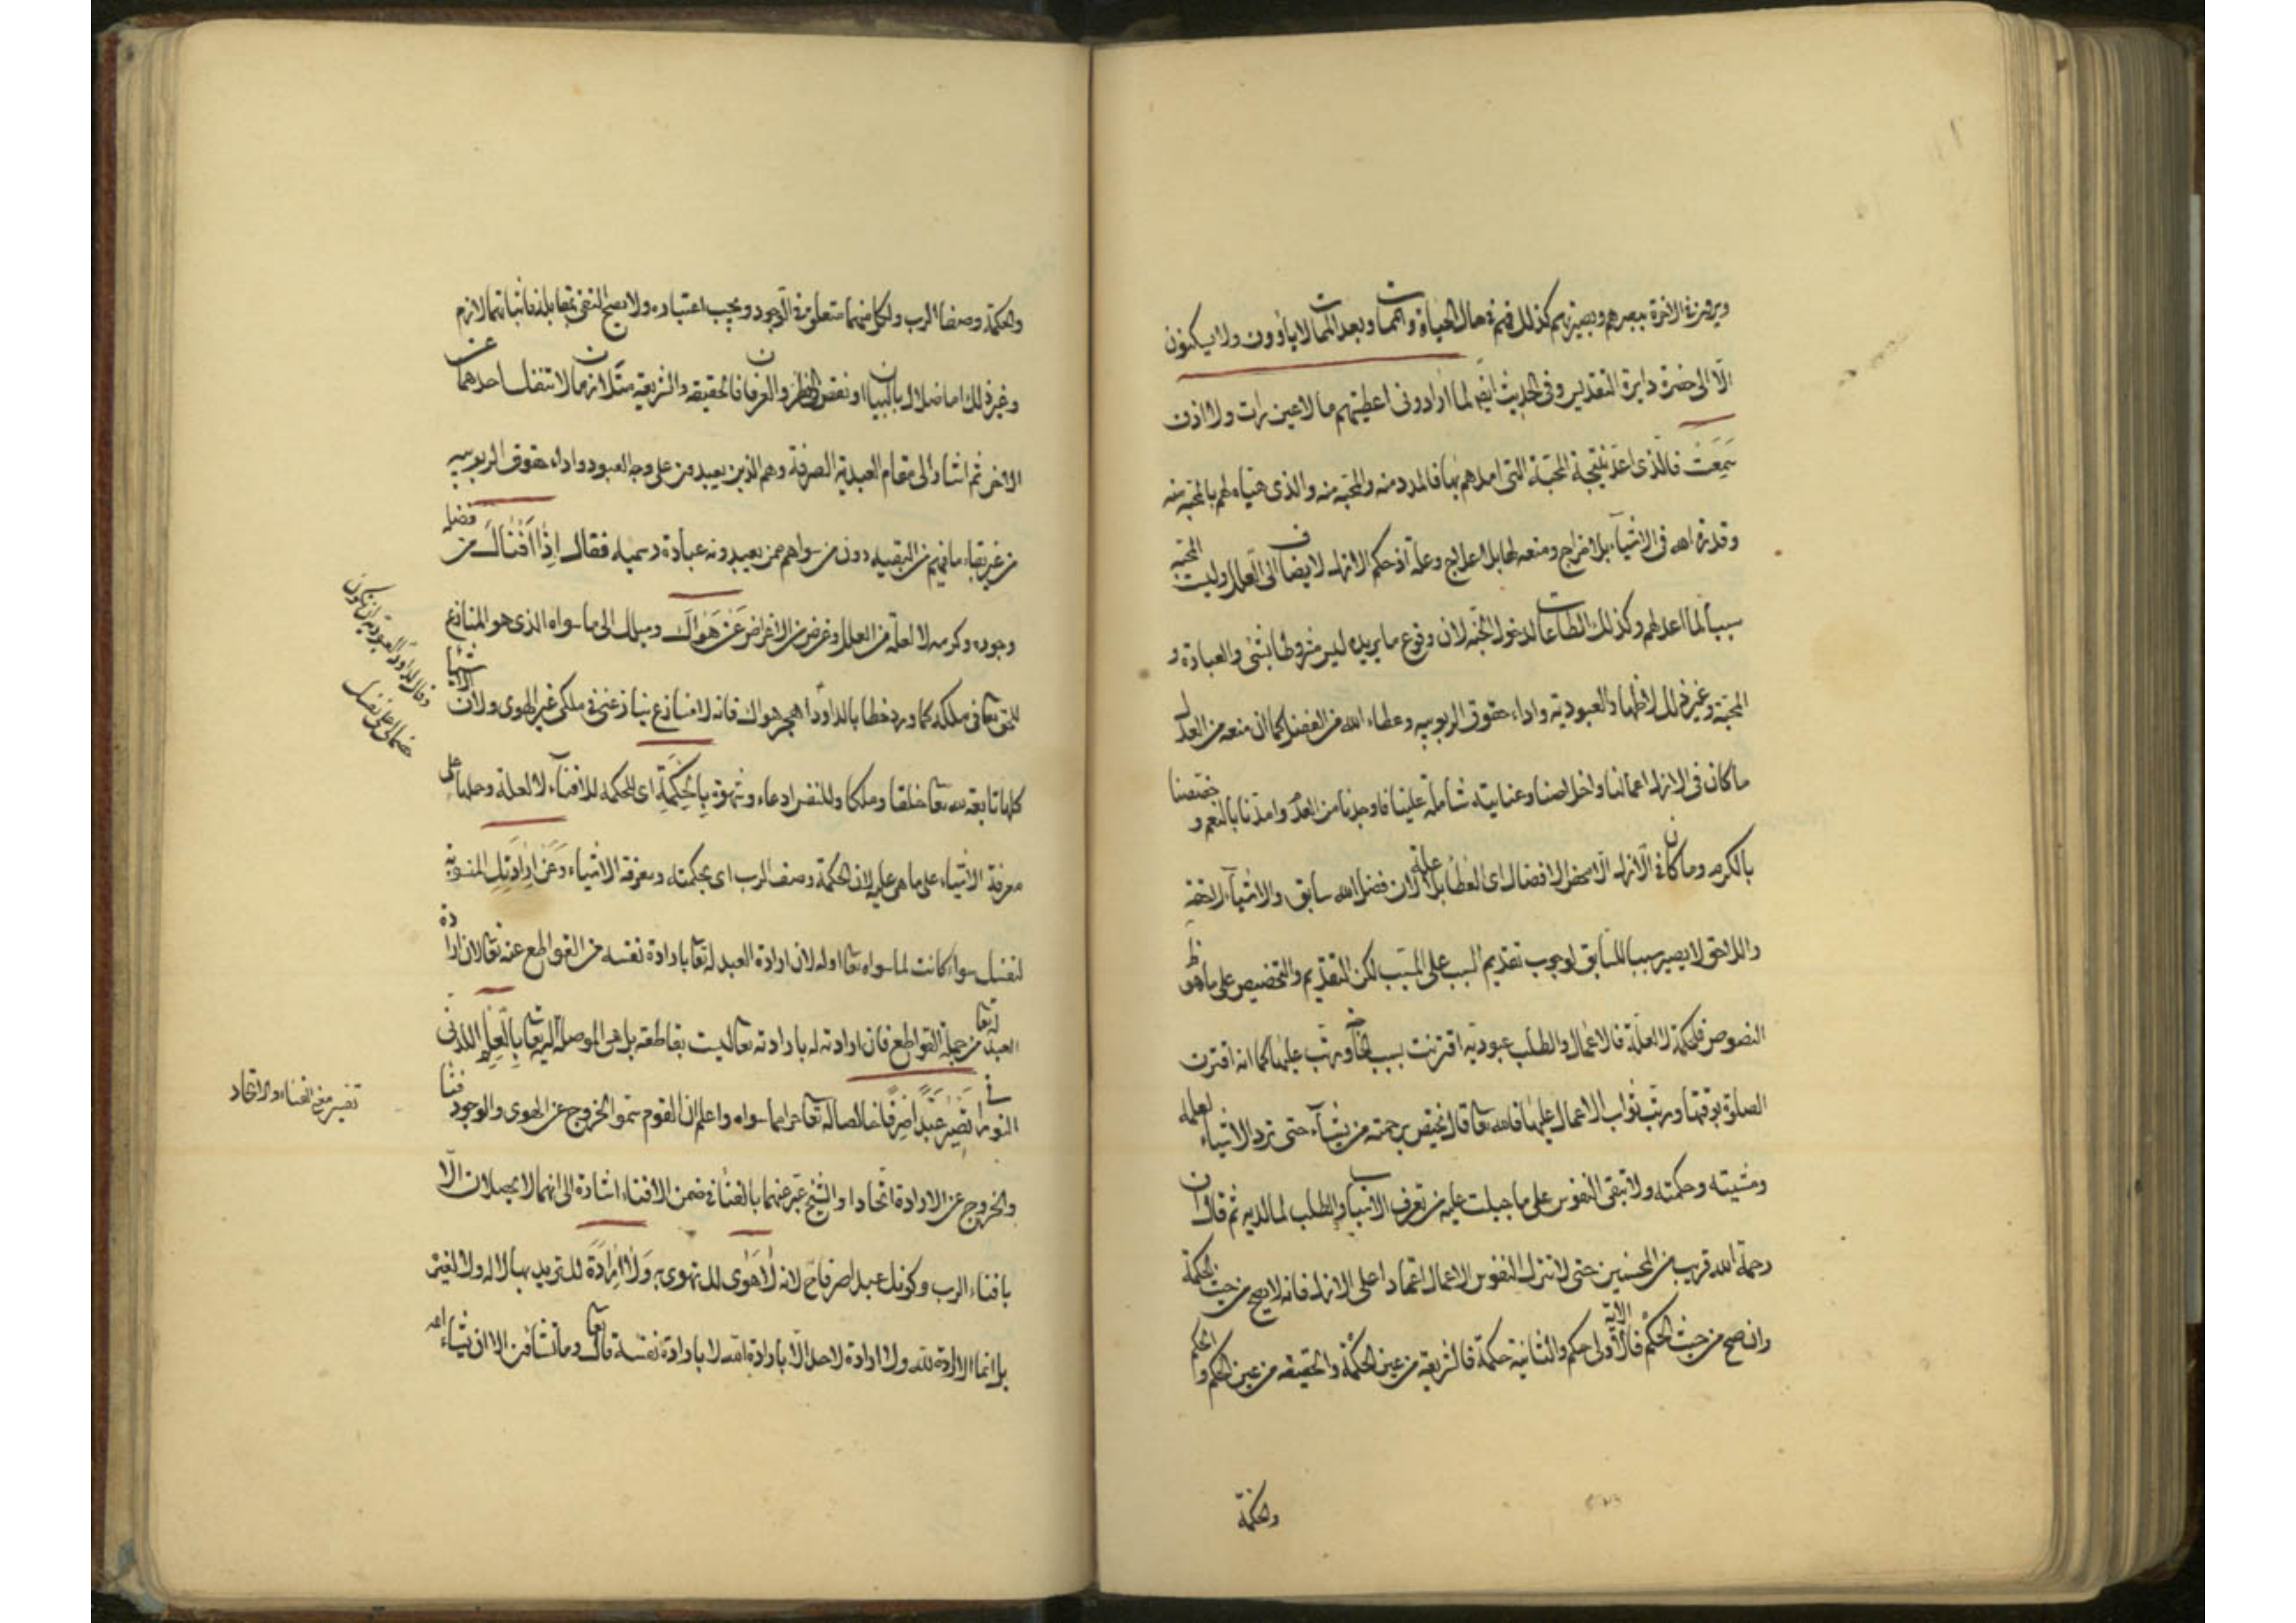 ويرونه في الاخرة ببصرهم وبصيرتهم كذلك فهم في حال الحياة والممات وبعد الممات لا يأوون ولا يسكنون
الا الى حضرة دايرة التقديس وفى الحديث ايضا لما ارادونى اعطيتهم ما لا عين رات ولا اذن
سمعت فالذى اعد نتيجة المحبة التى امدهم بها فالمدد منه والمحبة منه والذى هياه لهم بالمحبة منه
وقدرة الله فى الاشياء بلا مزاج ومنعه لها بلا علاج وعلة اذ حكم الازل لا يضاف الى العلل وليست المحبة
سببا لما اعد لهم وكذلك الطاعات لدخول الجنة لان وقوع ما يريده ليس مشروطا بشئ والعبادة و
المحبة وغير ذلك لاظهار العبودية واداء حقوق الربوبية وعطاء الله من الفضل كما ان منعه من العدل
ما كان فى الازل اعمالنا واخلاصنا وعنايته شاملة علينا فاوجدنا من العدم وامدنا بالنعم و خصصنا
بالكرم وما كان في الازل الا محض الافضال اى العطا بلا علة لان فضل الله سابق والاشياء لاحقة
واللاحق لا يصير سببا للسابق لوجوب تقديم السبب على المسبب لكن التقديم والتخصيص على ما هو ظ
النصوص فلحكمة لا لعلة فالاعمال والطلب عبودية اقترنت بسبب ورتب عليها كما انه اقترن
الصلوة بوقتها ورتب ثواب الاعمال عليها فالله تعا قال يختص برحمته من يشاء حتى ترد الاشياء لعلمه
ومشيته وحكمته ولا تبقى النفوس على ما جبلت عليه من تعرف الاسباب والطلب لما لديه ثم قال ان
رحمة الله قريب من المحسنين حتى لا تترك النفوس الاعمال اعتمادا على الازل فانه لا يصح من حيث الحكمة
وان صح من حيث الحكم فالاولى الاية حكم والثانية حكمة فالشريعة من عين الحكمة والحقيقة من عين الحكم و الحكم
والحكمة
والحكمة وصفا الرب ولكل منهما متعلق في الوجود ويجب اعتباره ولا يصح النفى بمقابله فاثباتهما لازم
وغير ذلك اما ضلال بالبيان او نقص النظر والعرفان فالحقيقة والشريعة متلازمان لا تنفك احدهما عن
الاخر ثم اشار الى مقام العبدية الصرفة وهم الذين يعبدون على وجه العبودو اداء حقوق الربوبيه
من غير بقاء ما فيهم من البقيه دون من سواهم ممن يعبدونه عبادة رسميه فقال اذا افناك من فضله
وجوده وكرمه لا لعلة من العلل وغرض من الاغراض عن هواك وميلك الى ما سواه الذى هو المنازع
للحق تعا فى ملكه كما ورد خطابا لداود اهجر هواك فانه لا منازع ينازعنى في ملكى غير الهوى ولان الاشيا
كلها تابعة لله تعا خلقا وملكا وللنفس ادعاء وشهوة بالحكمة اى للحكمة للافناء لا لعلة وحملها على
معرفة الاشياء على ما هى عليه لان الحكمة وصف الرب اى بحكمته ومعرفة الاشياء وعن ارادتك المنسوبة
لنفسك سواء كانت لما سواه تعا او له لان ارادة العبد له تعا بارادة نفسه من القواطع عنه تعا لان ارادة
العبد له تعا من جملة القواطع فان ارادته له بارادته تعا ليست بقاطعة بل هى الموصلة اليه تعا بالعلم اللدنى
النورانى تصير عبدا صرفا خالصا له تعا حرا عما سواه واعلم ان القوم سموا الخروج عن الهوى والوجود فنا
والخروج عن الارادة اتحادا والشيخ عبر عنهما بالفنا في ضمن الافناء اشارة الى انهما لا يحصلان الا
بافناء الرب وكونك عبدا صرفا ح لانه لا هوى لك تهوى به ولا ارادة لك تريد بها لا له ولا لغيره
بل انما الارادة لله ولا ارادة لاحد الا بارادة الله لا بارادة نفسه قال تعا وما تشاؤن الا ان يشاء الله
تفسير معنى الفناء والاتحاد